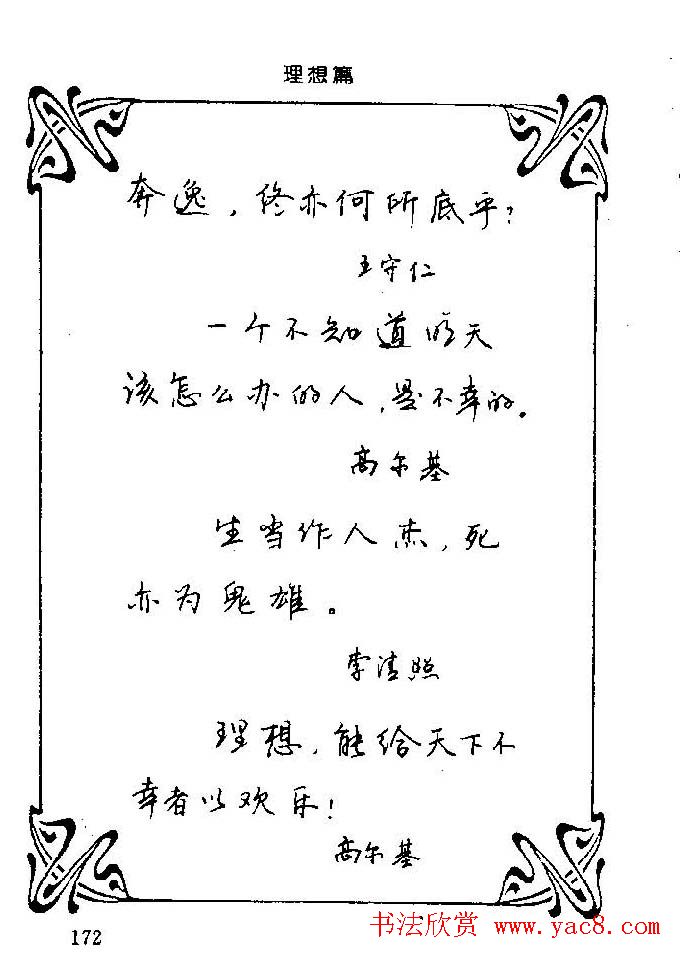 理想篇
奔逸，终亦何所底乎？
王守仁
一个不知道明天
该怎么办的人，是不幸的。
高尔基
生当作人杰，死
亦为鬼雄。
李清照
理想，能给天下不
幸者以欢乐！
高尔基
172
书法欣赏 www.yac8.com